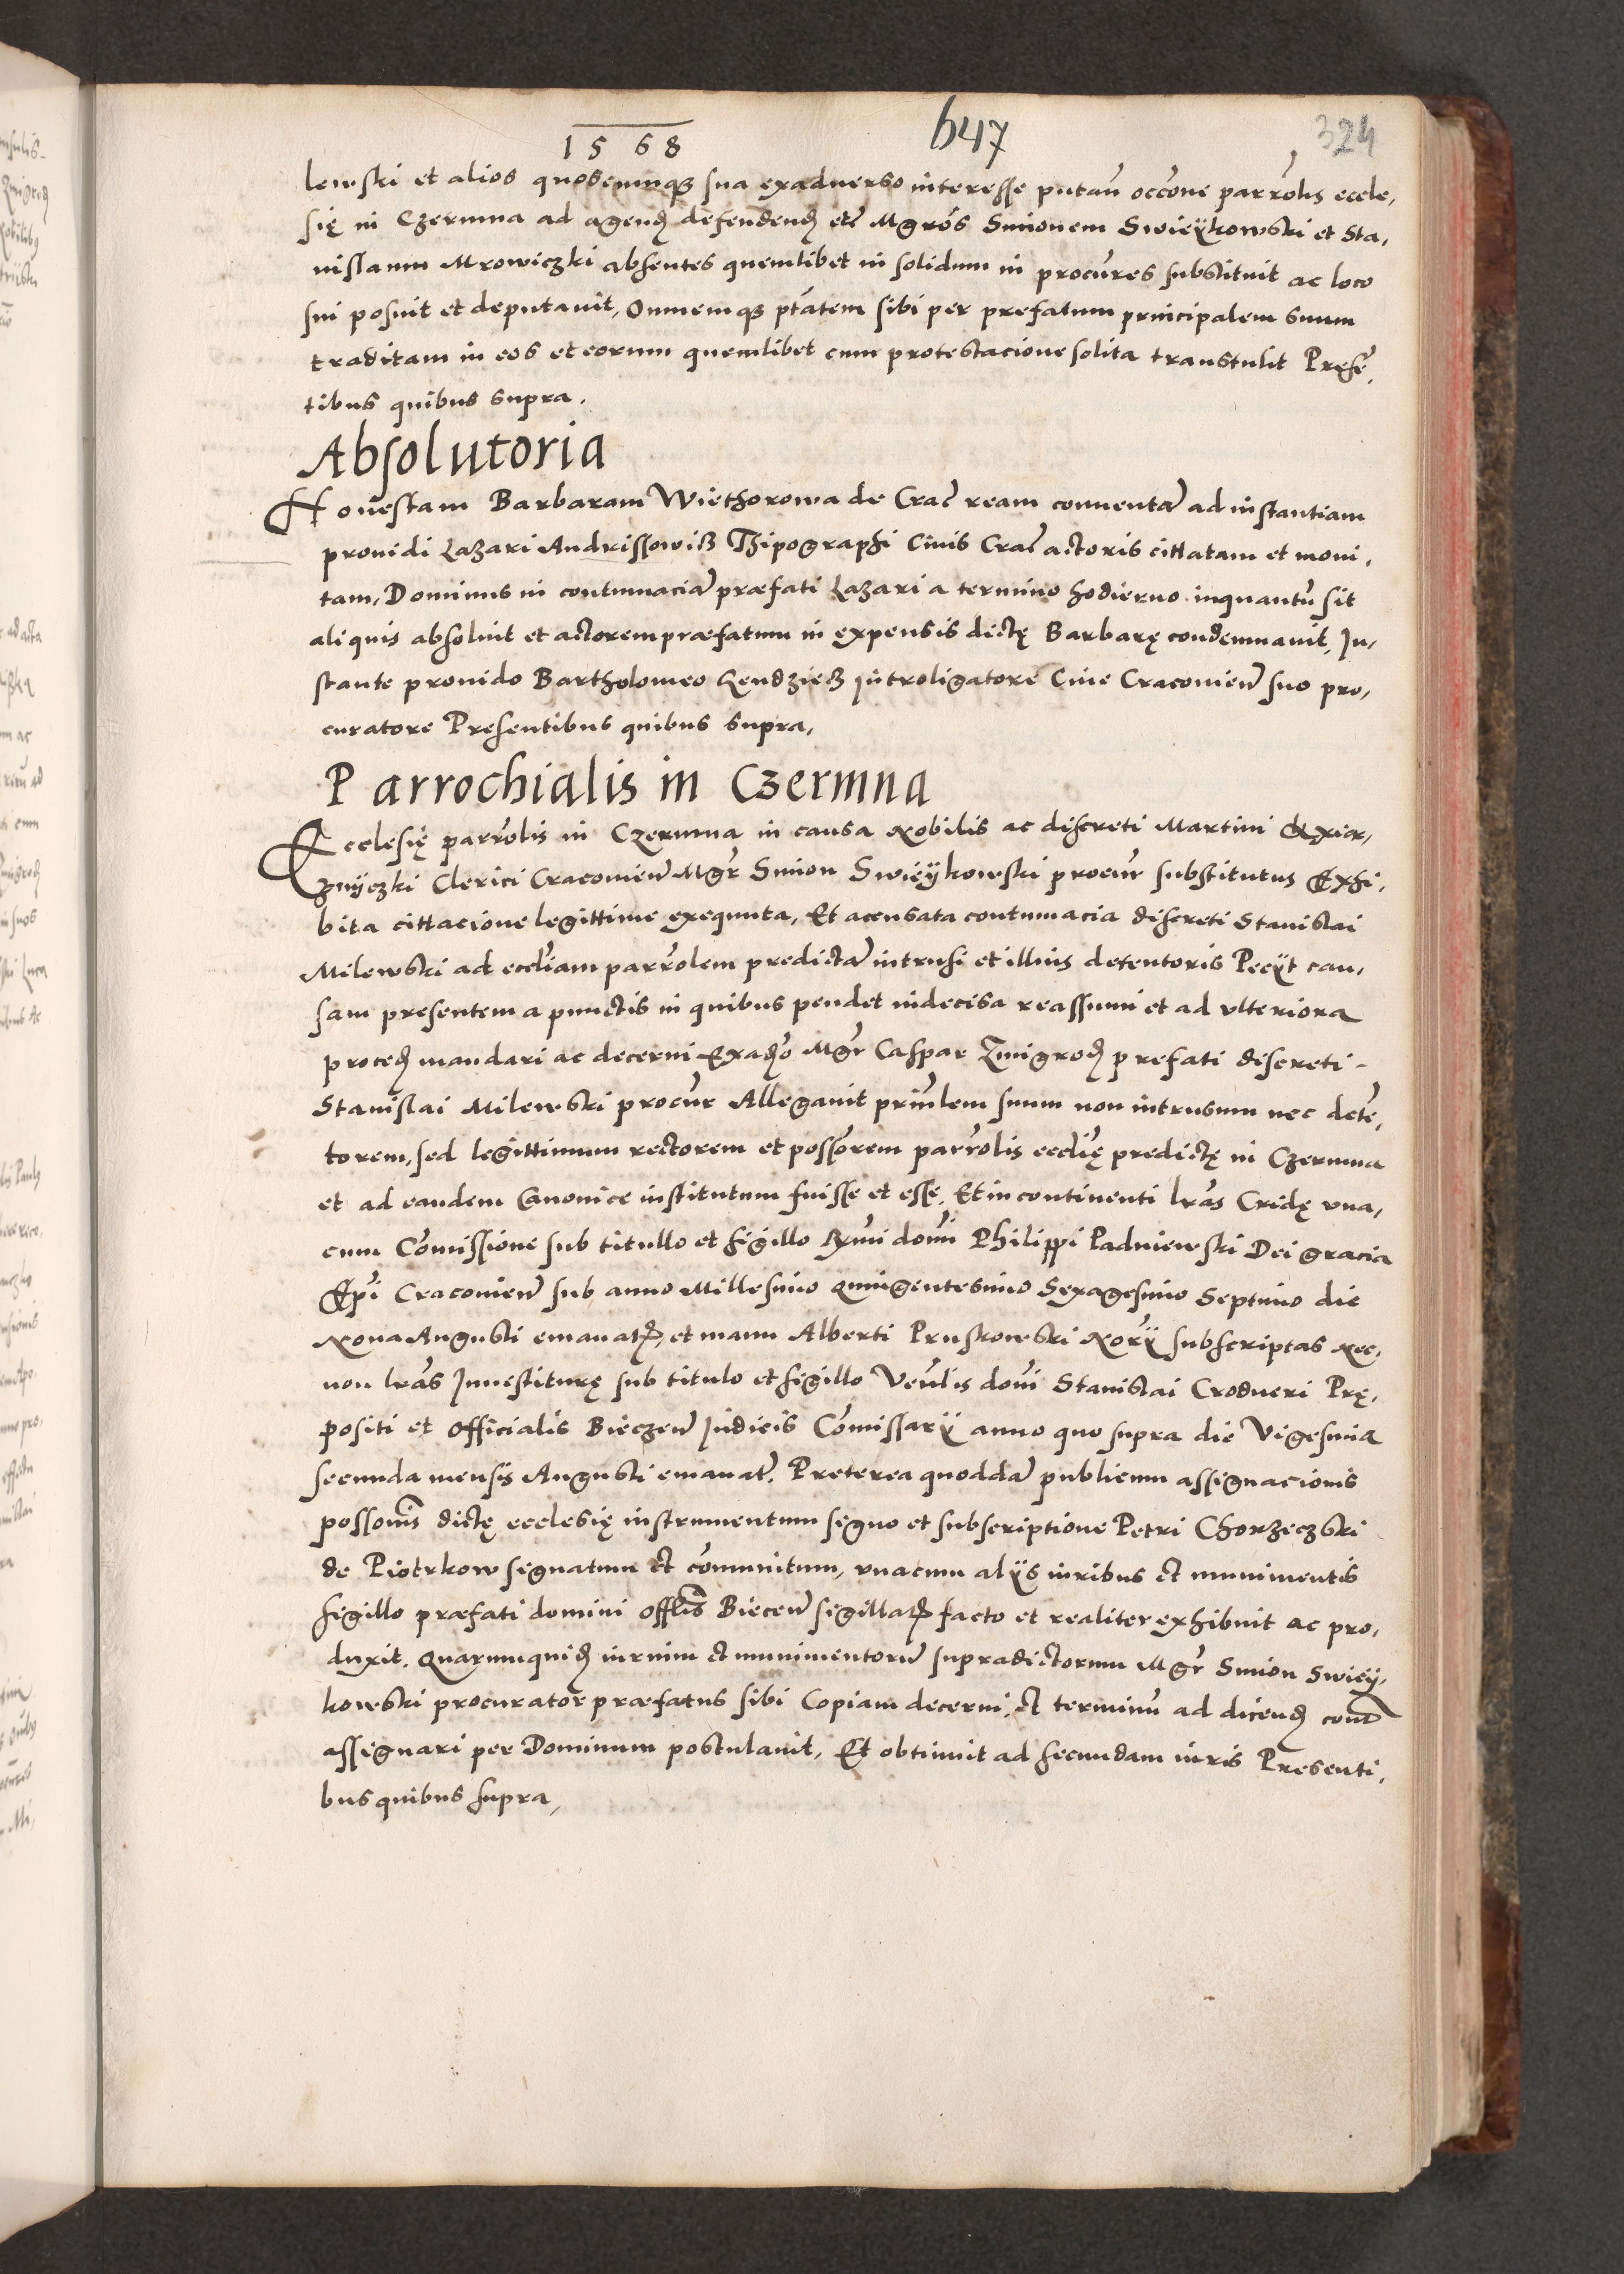 1568
647
324
lewski et alios quoscunqȝ sua exaduerso interesse putañ occõne parrõlis eccle,
się in Czermna ad agend defendend etc Mgrõs Simonem Swieÿkowski et Sta,
nislaum Mrowiczki absentes quemlibet in solidum in procures substituit ac loco
sui posuit et deputauit, Omnemqȝ ptãtem sibi per prefatum principalem suum
traditam in eos et eorum quemlibet cum protestacione solita transtulit Pręsẽ,
tibus quibus supra.
Absolutoria
Honestam Barbaram Wiethorowa de Crac ream conuentã ad instantiam
prouidi Lazari Andrissowiß Thipographi Ciuis Crac actoris cittatam et moni,
tam, Dominus in contumaciã præfati Lazari a termino hodierno inquantũ sit
aliquis absoluit et actorem præfatum in expensis dictę Barbarę condemnauit, In,
stante prouido Bartholomeo Kendzierß introligatore Ciue Cracouieñ suo pro,
curatore Presentibus quibus supra,
Parrochialis in Czermna
Ecclesię parrõlis in Czermna in causa Nobilis ac discreti Martini
znÿczki Clerici Cracouieñ Mgr Simon Swieÿkowski procur substitutus Exhi,
bita cittacione legittime exequuta, Et accusata contumacia discreti Stanislai
Milewski ad eccliam parrõlem predictã intrusi et illius detentoris Peÿt cau,
sam presentem a punctis in quibus pendet indecisa reassumi et ad vlteriora
proced mandari ac decerni Exaduo Mgr Caspar Zmigrod prefati discreti
Stanislai Milewski procur Allegauit prinlem suum non intrusum nec detẽ,
torem, sed legittimum rectorem et possõrem parrõlis ecclię predictę in Czermna
et ad eandem Canonice institutum fuisse et esse, Et in continenti lrãs Cridę vna,
cum Cõmissione sub titullo et sigillo Rxmi domi Philippi Padniewski Dei gracia
Epi Cracouieñ sub anno Millesimo quingentesimo Sexagesimo Septimo die
Nona Augusti emanat, et manu Alberti Pruskowski Norÿ subscriptas Nec,
non lrãs Inuestiturę sub titulo et sigillo Venlis domi Stanislai Crodueri Prę,
positi et Officialis Bieczeñ Iudicis Cõmissarÿ anno quo supra die Vigesima
secunda mensis Augusti emanat. Preterea quoddã publicum assignacionis
possonis dictę ecclesię instrumentum segno et subscriptione Petri Chorzeczski
de Piotrkow segnatum et cõmunitum, vnacum alÿs iuribus et munimentis
sigillo præfati domini Offlis Bieceñ sigillat facto et realiter exhibuit ac pro,
duxit. Quarumquid iurium et munimentorũ supradictorum Mgr Simon Swieÿ,
kowski procurator præfatus sibi Copiam decerni, et terminũ ad dicend cont
assignari per Dominum postulauit, Et obtinuit ad secundam iuris Presenti,
bus quibus supra,